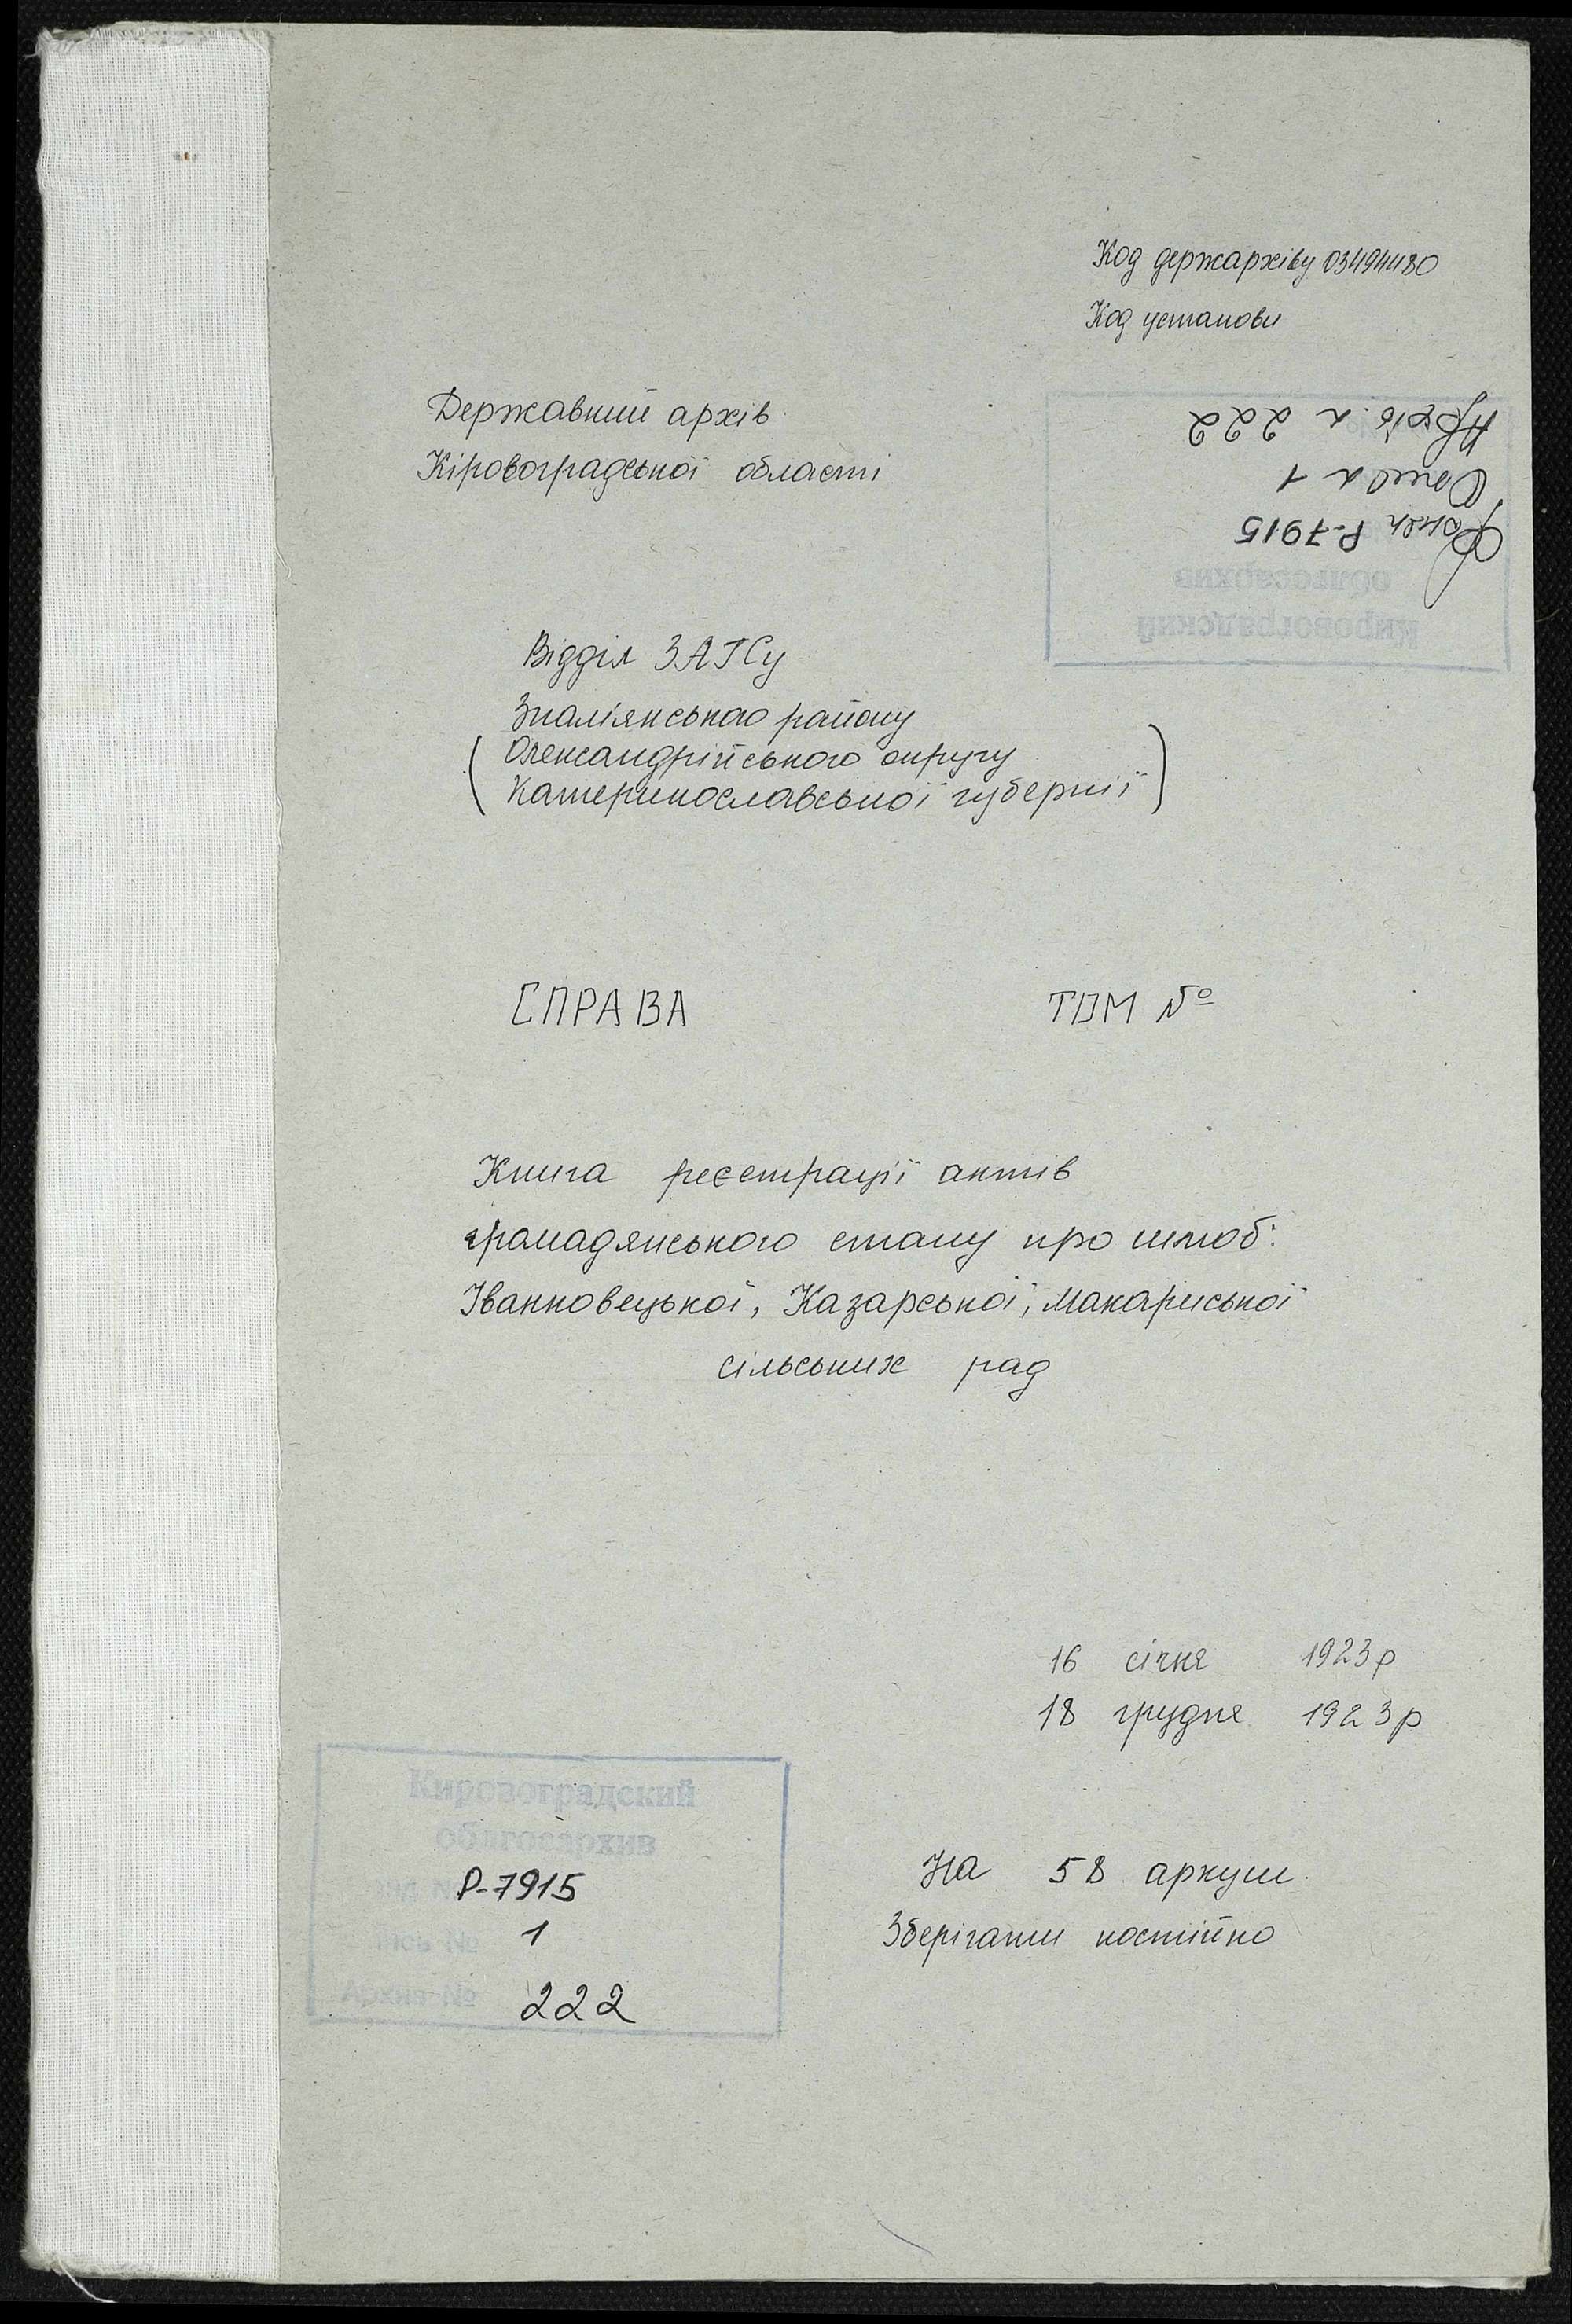 Код держархіву 03494480
Код установи
Державний архів
Кіровоградської області
Архів. № 222
Опис № 1
Фонд Р-7915
облгосархив
Кировоградский
Відділ ЗАГСу
Знам'янського району
(Олександрійського округу
Катеринославської губернії)
СПРАВА ТОМ №
Книга реєстрації актів
громадянського стану про шлюб:
Іванковецької, Казарської, Макариської
сільських рад
16 січня 1923р
18 грудня 1923р
Кировоградский
облгосархив
Р-7915
1
Архив № 222
На 58 аркуш.
Зберігати постійно